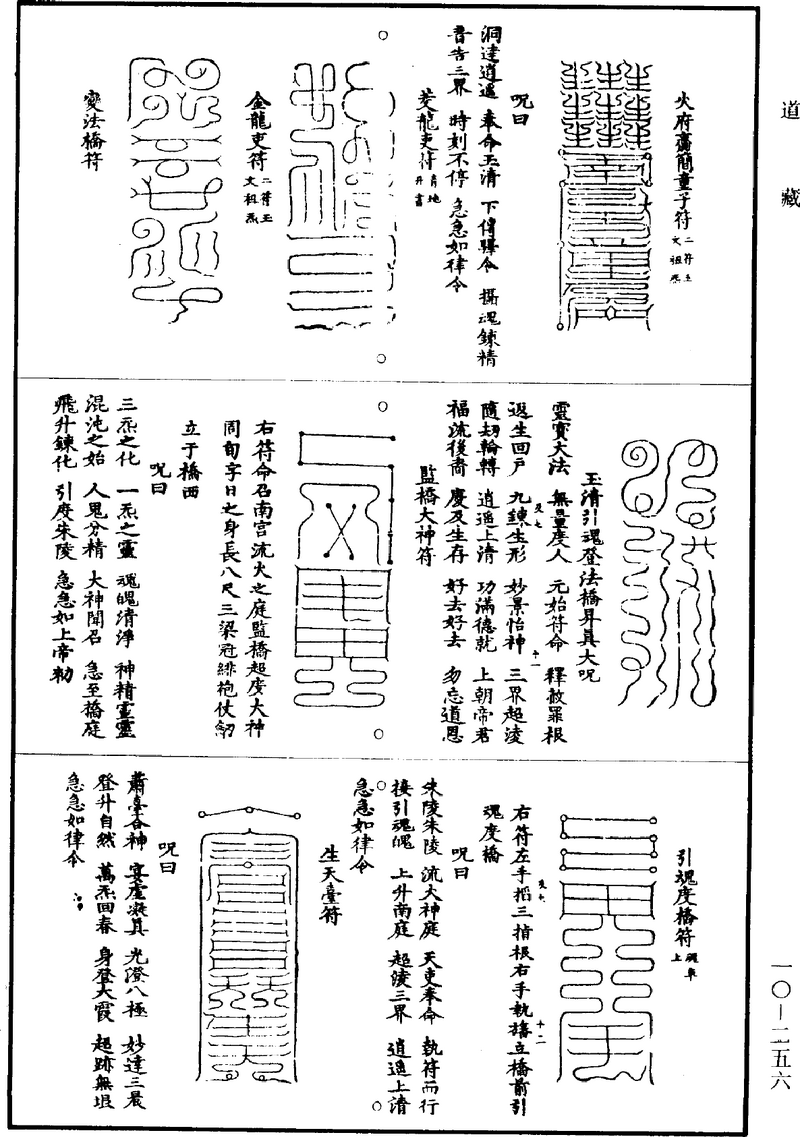 道藏
火府賫簡童子符 二符主文祖炁
咒曰
洞達逍遥 奉命玉清 下傳驛令 攝魂鍊精
書告三界 時刻不停 急急如律令
茭龍吏符 青地丹書
金龍吏符 二符玉文祖炁
變法橋符
玉清引魂登法橋昇真大呪
靈寶大法 無量度人 元始符命 釋赦罪根
返生回尸 九鍊生形 妙景怡神 三界超淩
隨刼輪轉 逍遥上清 功滿德就 上朝帝君
福流後裔 慶及生存 好去好去 勿忘道恩
監橋大神符
右符命召南宮流火之庭監橋超度大神
同旬字日之身長八尺三梁冠緋袍仗劒
立于橋西
呪曰
三炁之化 一炁之靈 魂魄清淨 神精靈靈
混沌之始 人鬼分精 大神聞召 急至橋庭
飛升鍊化 引度朱陵 急急如上帝勑
引魂度橋符
右符左手掐三指根右手執旛立橋前引
魂度橋
呪曰
朱陵朱陵 流火神庭 天吏奉命 執符而行
接引魂魄 上升南庭 超淩三界 逍遥上清
急急如律令
生天臺符
呪曰
蕭臺谷神 寥虛凝真 光澄八極 妙達三晨
登升自然 萬炁回春 身登大霞 超跡無垠
急急如律令
一〇—二五六